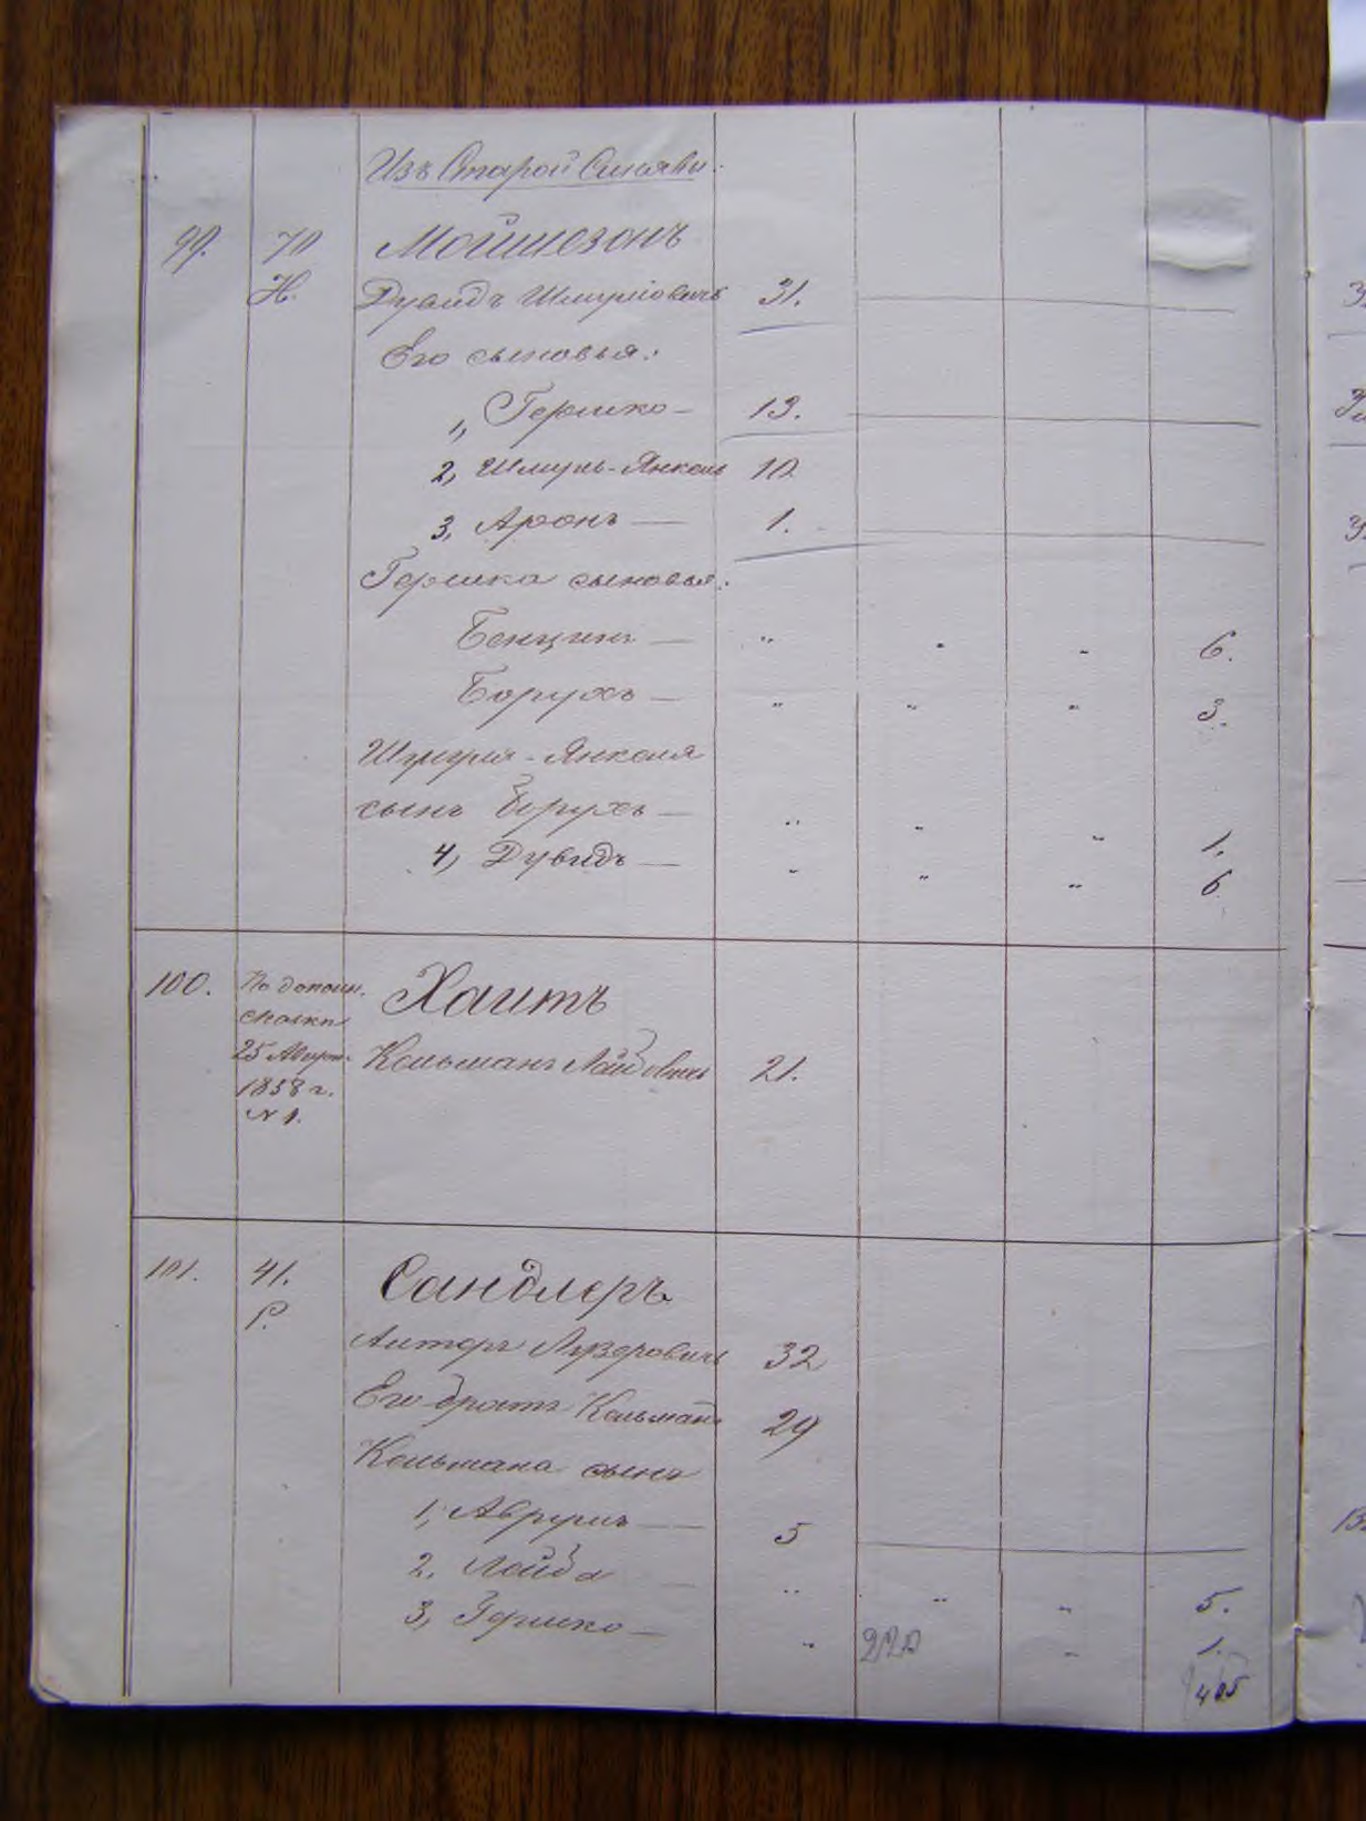 Изъ Старой Синявы:
99. 70 Мошиезонъ
Н. Дувидъ Шмулiовичъ 31.
Его сыновья:
1, Гершко — 13.
2, Шмуль-Янкель 10
3, Аронъ — 1.
Гершка сыновья:
Бенцiнъ — " " " 6.
Борухъ — " " " 3.
Шмуля-Янкеля
сынъ Борухъ — " " " 1.
4, Дувидъ — " " " 6
100. По дополн. Хаитъ
сказкѣ
25 Август. Кельманъ Лейбовичъ 21.
1858 г.
N 1.
101. 41. Сандлеръ
Р.
Лузеровичъ 32
Его братъ Кельманъ 29
Кельмана сынъ
1, Аврумъ — 5
2. Лейба — " " " 5.
3, Гершко — " 220 " 1.
405